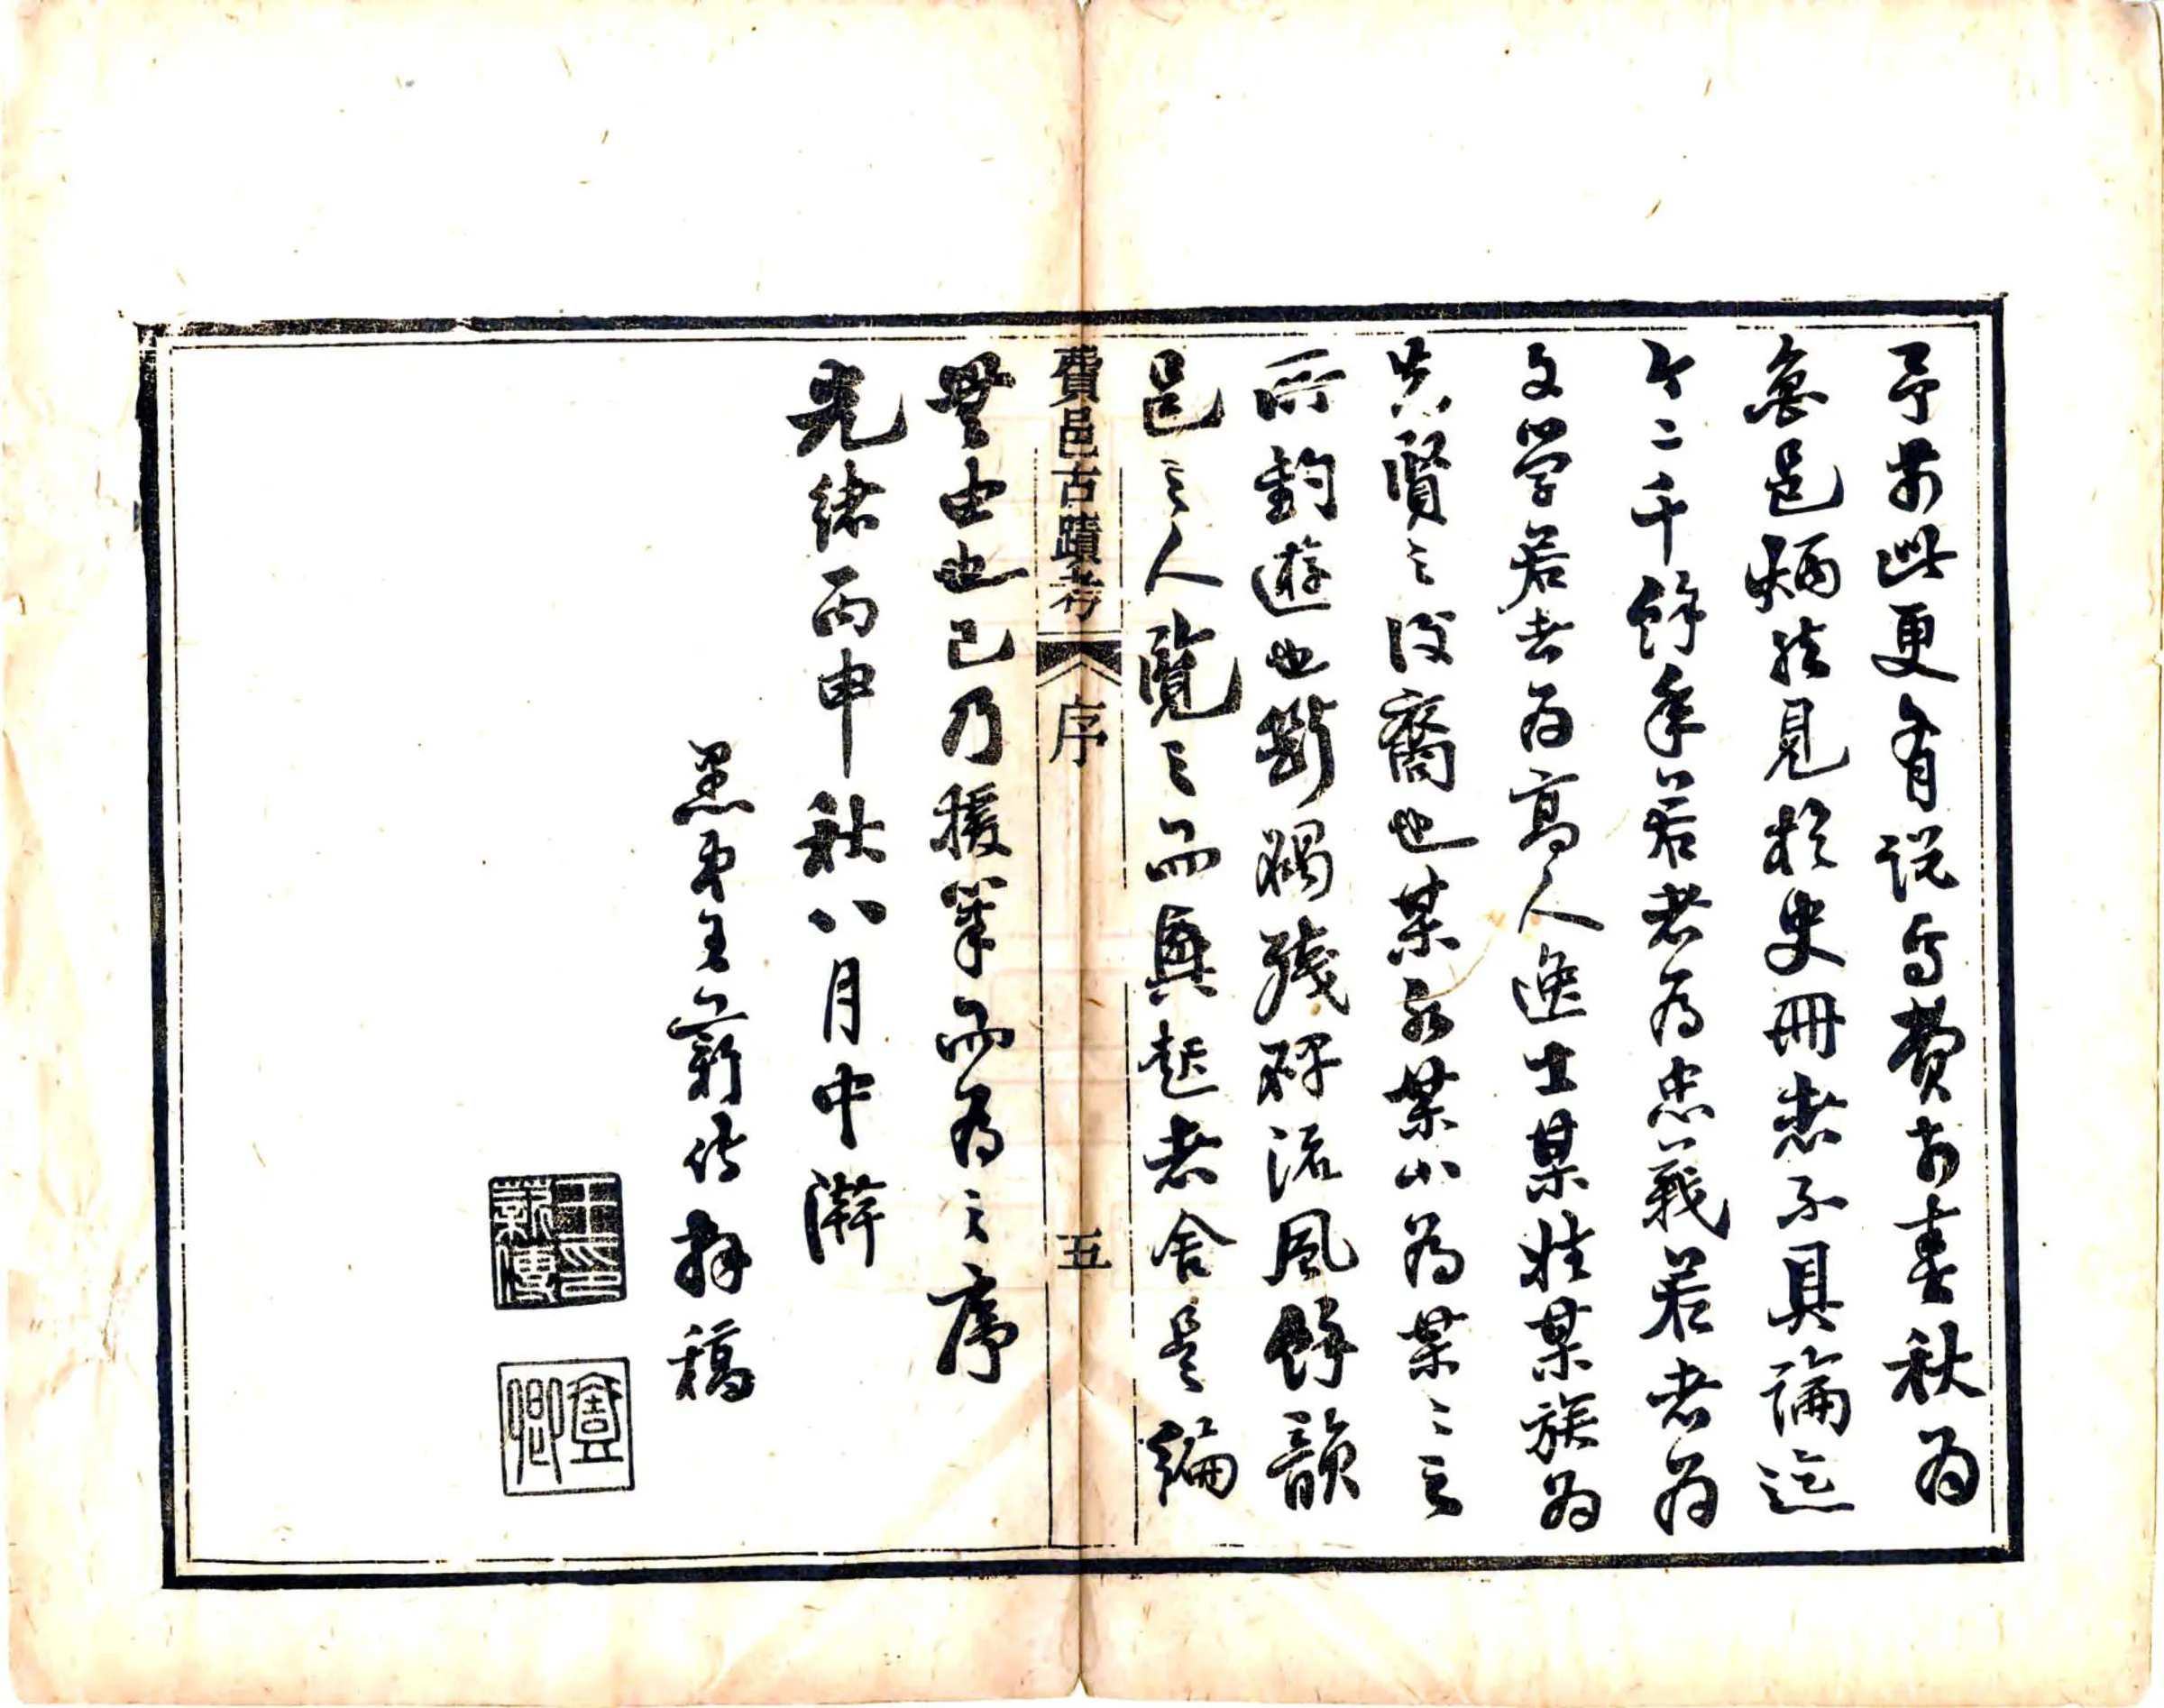 予於此更有說焉費在春秋為
魯邑炳然見於史冊者不具論迄
今二千餘年若者為忠義若者為
文學若者為高人逸士某姓某族為
先賢之後裔也某水某山為某某之
所釣遊也斷碣殘碑流風餘韻
邑之人覽之而興起者舍是編
費邑古蹟考
序
五
無由也已乃援筆而為之序
光緒丙申秋八月中澣
王薪傳拜稿
王印薪傳
寶卿